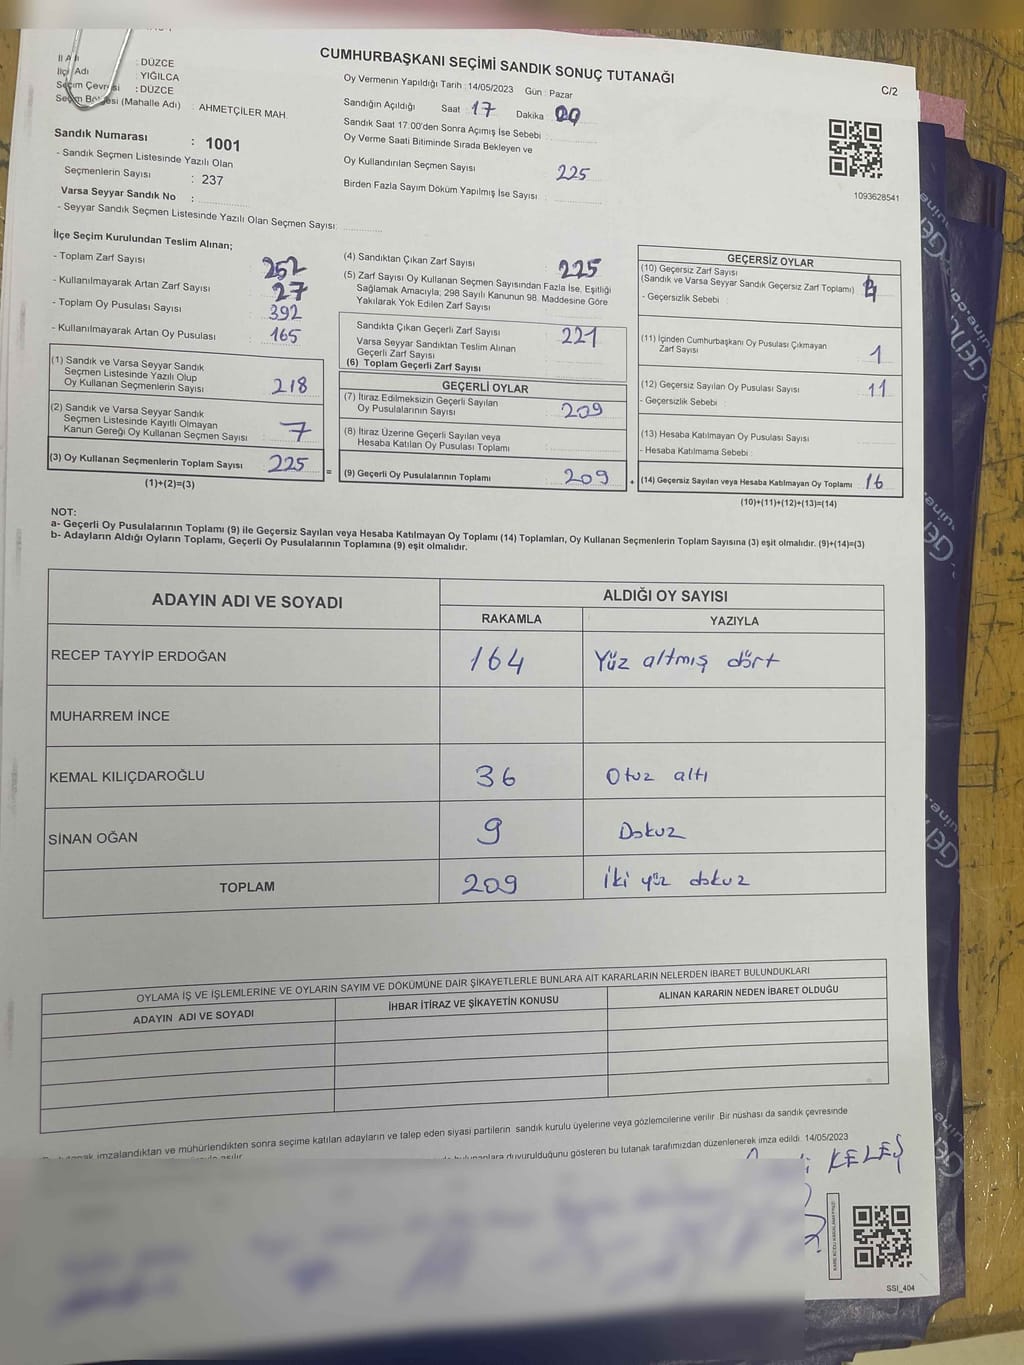 CUMHURBAŞKANI SEÇİMİ SANDIK SONUÇ TUTANAĞI
C/2
: DÜZCE
İlçe Adı : YIĞILCA
Seçim Çevresi : DÜZCE
Seçim Bölgesi (Mahalle Adı) : AHMETÇİLER MAH.
Sandık Numarası : 1001
- Sandık Seçmen Listesinde Yazılı Olan
Seçmenlerin Sayısı : 237
Varsa Seyyar Sandık No :
- Seyyar Sandık Seçmen Listesinde Yazılı Olan Seçmen Sayısı:
Oy Vermenin Yapıldığı Tarih : 14/05/2023 Gün : Pazar
Sandığın Açıldığı Saat 17 Dakika
Sandık Saat 17:00'den Sonra Açımış İse Sebebi :
Oy Verme Saati Bitiminde Sırada Bekleyen ve
Oy Kullandırılan Seçmen Sayısı 225
Birden Fazla Sayım Döküm Yapılmış İse Sayısı :
1093628541
İlçe Seçim Kurulundan Teslim Alınan;
- Toplam Zarf Sayısı 252
- Kullanılmayarak Artan Zarf Sayısı 27
- Toplam Oy Pusulası Sayısı 392
- Kullanılmayarak Artan Oy Pusulası 165
(1) Sandık ve Varsa Seyyar Sandık
Seçmen Listesinde Yazılı Olup
Oy Kullanan Seçmenlerin Sayısı 218
(2) Sandık ve Varsa Seyyar Sandık
Seçmen Listesinde Kayıtlı Olmayan
Kanun Gereği Oy Kullanan Seçmen Sayısı 7
(3) Oy Kullanan Seçmenlerin Toplam Sayısı 225
(1)+(2)=(3)
=
(4) Sandıktan Çıkan Zarf Sayısı 225
(5) Zarf Sayısı Oy Kullanan Seçmen Sayısından Fazla İse, Eşitliği
Sağlamak Amacıyla, 298 Sayılı Kanunun 98. Maddesine Göre
Yakılarak Yok Edilen Zarf Sayısı
Sandıkta Çıkan Geçerli Zarf Sayısı 221
Varsa Seyyar Sandıktan Teslim Alınan
Geçerli Zarf Sayısı
(6) Toplam Geçerli Zarf Sayısı
GEÇERLİ OYLAR
(7) İtiraz Edilmeksizin Geçerli Sayılan
Oy Pusulalarının Sayısı 209
(8) İtiraz Üzerine Geçerli Sayılan veya
Hesaba Katılan Oy Pusulası Toplamı
(9) Geçerli Oy Pusulalarının Toplamı 209
+
GEÇERSİZ OYLAR
(10) Geçersiz Zarf Sayısı
(Sandık ve Varsa Seyyar Sandık Geçersiz Zarf Toplamı)
- Geçersizlik Sebebi :
(11) İçinden Cumhurbaşkanı Oy Pusulası Çıkmayan
Zarf Sayısı 1
(12) Geçersiz Sayılan Oy Pusulası Sayısı 11
- Geçersizlik Sebebi :
(13) Hesaba Katılmayan Oy Pusulası Sayısı
- Hesaba Katılmama Sebebi :
(14) Geçersiz Sayılan veya Hesaba Katılmayan Oy Toplamı 16
(10)+(11)+(12)+(13)=(14)
NOT:
a- Geçerli Oy Pusulalarının Toplamı (9) ile Geçersiz Sayılan veya Hesaba Katılmayan Oy Toplamı (14) Toplamları, Oy Kullanan Seçmenlerin Toplam Sayısına (3) eşit olmalıdır. (9)+(14)=(3)
b- Adayların Aldığı Oyların Toplamı, Geçerli Oy Pusulalarının Toplamına (9) eşit olmalıdır.
ADAYIN ADI VE SOYADI ALDIĞI OY SAYISI
RAKAMLA YAZIYLA
RECEP TAYYİP ERDOĞAN 164 Yüz altmış dört
MUHARREM İNCE
KEMAL KILIÇDAROĞLU 36 Otuz altı
SİNAN OĞAN 9 Dokuz
TOPLAM 209 İki yüz dokuz
OYLAMA İŞ VE İŞLEMLERİNE VE OYLARIN SAYIM VE DÖKÜMÜNE DAİR ŞİKAYETLERLE BUNLARA AİT KARARLARIN NELERDEN İBARET BULUNDUKLARI
ADAYIN ADI VE SOYADI İHBAR İTİRAZ VE ŞİKAYETİN KONUSU ALINAN KARARIN NEDEN İBARET OLDUĞU
imzalandıktan ve mühürlendikten sonra seçime katılan adayların ve talep eden siyasi partilerin sandık kurulu üyelerine veya gözlemcilerine verilir. Bir nüshası da sandık çevresinde
duyurulduğunu gösteren bu tutanak tarafımızdan düzenlenerek imza edildi. 14/05/2023
KELEŞ
SSI_404